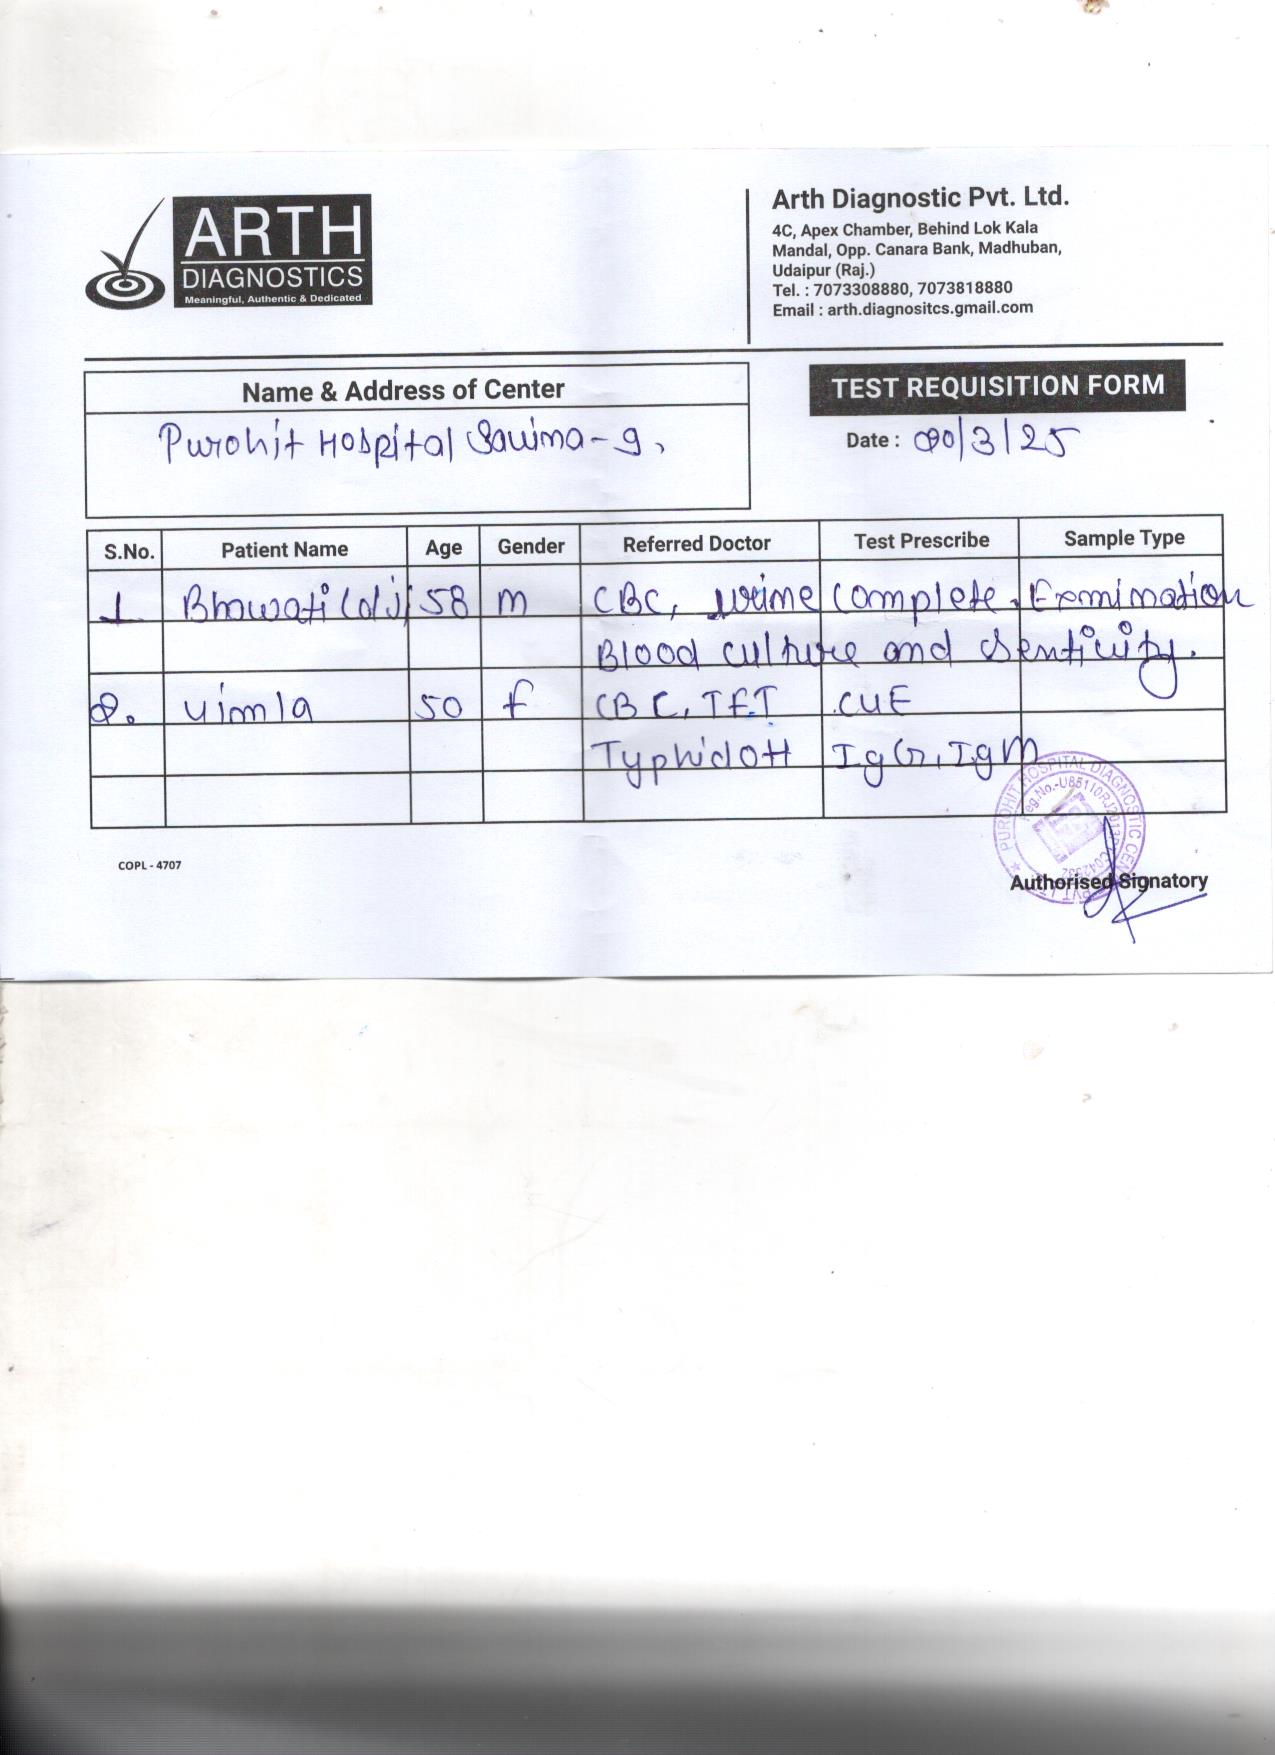 ARTH
DIAGNOSTICS
Meaningful, Authentic & Dedicated
Arth Diagnostic Pvt. Ltd.
4C, Apex Chamber, Behind Lok Kala
Mandal, Opp. Canara Bank, Madhuban,
Udaipur (Raj.)
Tel. : 7073308880, 7073818880
Email : arth.diagnositcs.gmail.com
Name & Address of Center
Purohit Hospital
TEST REQUISITION FORM
Date : /3/25
S.No. Patient Name Age Gender Referred Doctor Test Prescribe Sample Type
1 Bhawati 58 m CBC, urine complete. Exmination
Blood culture and Senticity.
2. vimla 50 f CBC, TFT CUE
Typhidott IgG, IgM
PUROHIT HOSPITAL DIAGNOSTIC
COPL - 4707
Authorised Signatory